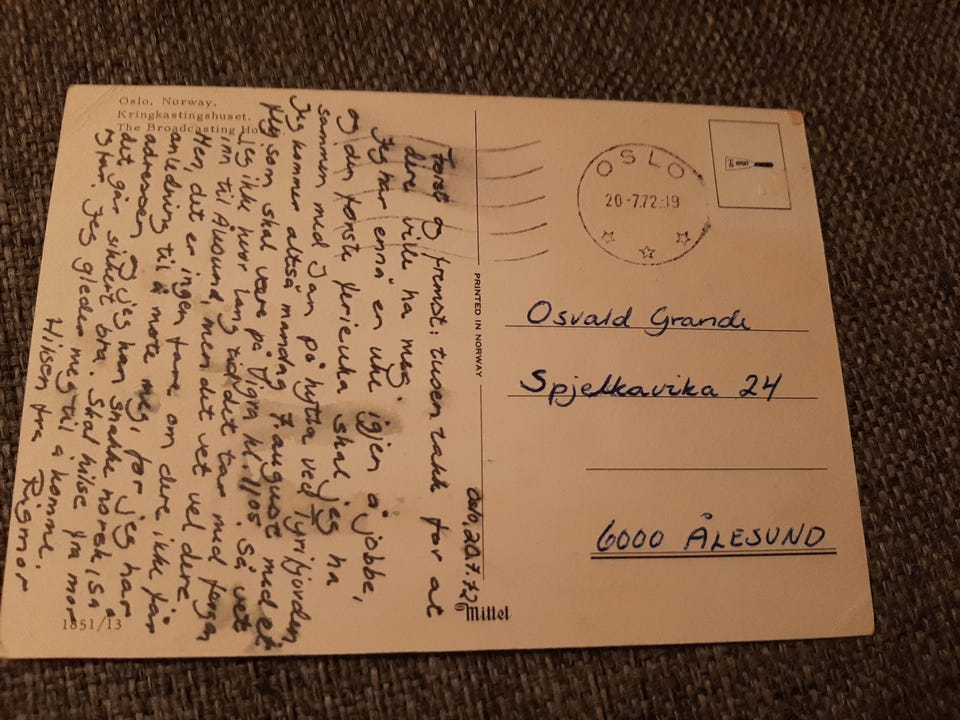 Oslo, Norway.
Kringkastingshuset.
The Broadcasting Ho
Oslo, 20.7.72
Først og fremst: tusen takk for at
dere ville ha meg.
Jeg har ennå en uke igjen å jobbe,
og den første ferieuka skal jeg ha
sammen med Jan på hytta ved Tyrifjorden
Jeg kommer altså mandag 7. august med et
fly som skal være på Vigra kl. 1105. Så vet
jeg ikke hvor lang tid det tar med fergen
inn til Ålesund, men det vet vel dere.
Men, det er ingen fare om dere ikke får
anledning til å møte meg, for jeg har
adressen og jeg kan snakke norsk, så
det går sikkert bra. Skal hilse fra mor
og far. Jeg gleder meg til å komme.
Hilsen fra Rigmor
1851/13
PRINTED IN NORWAY
Mittet
OSLO
20-7.72.19
Osvald Grande
Spjelkavika 24
6000 ÅLESUND